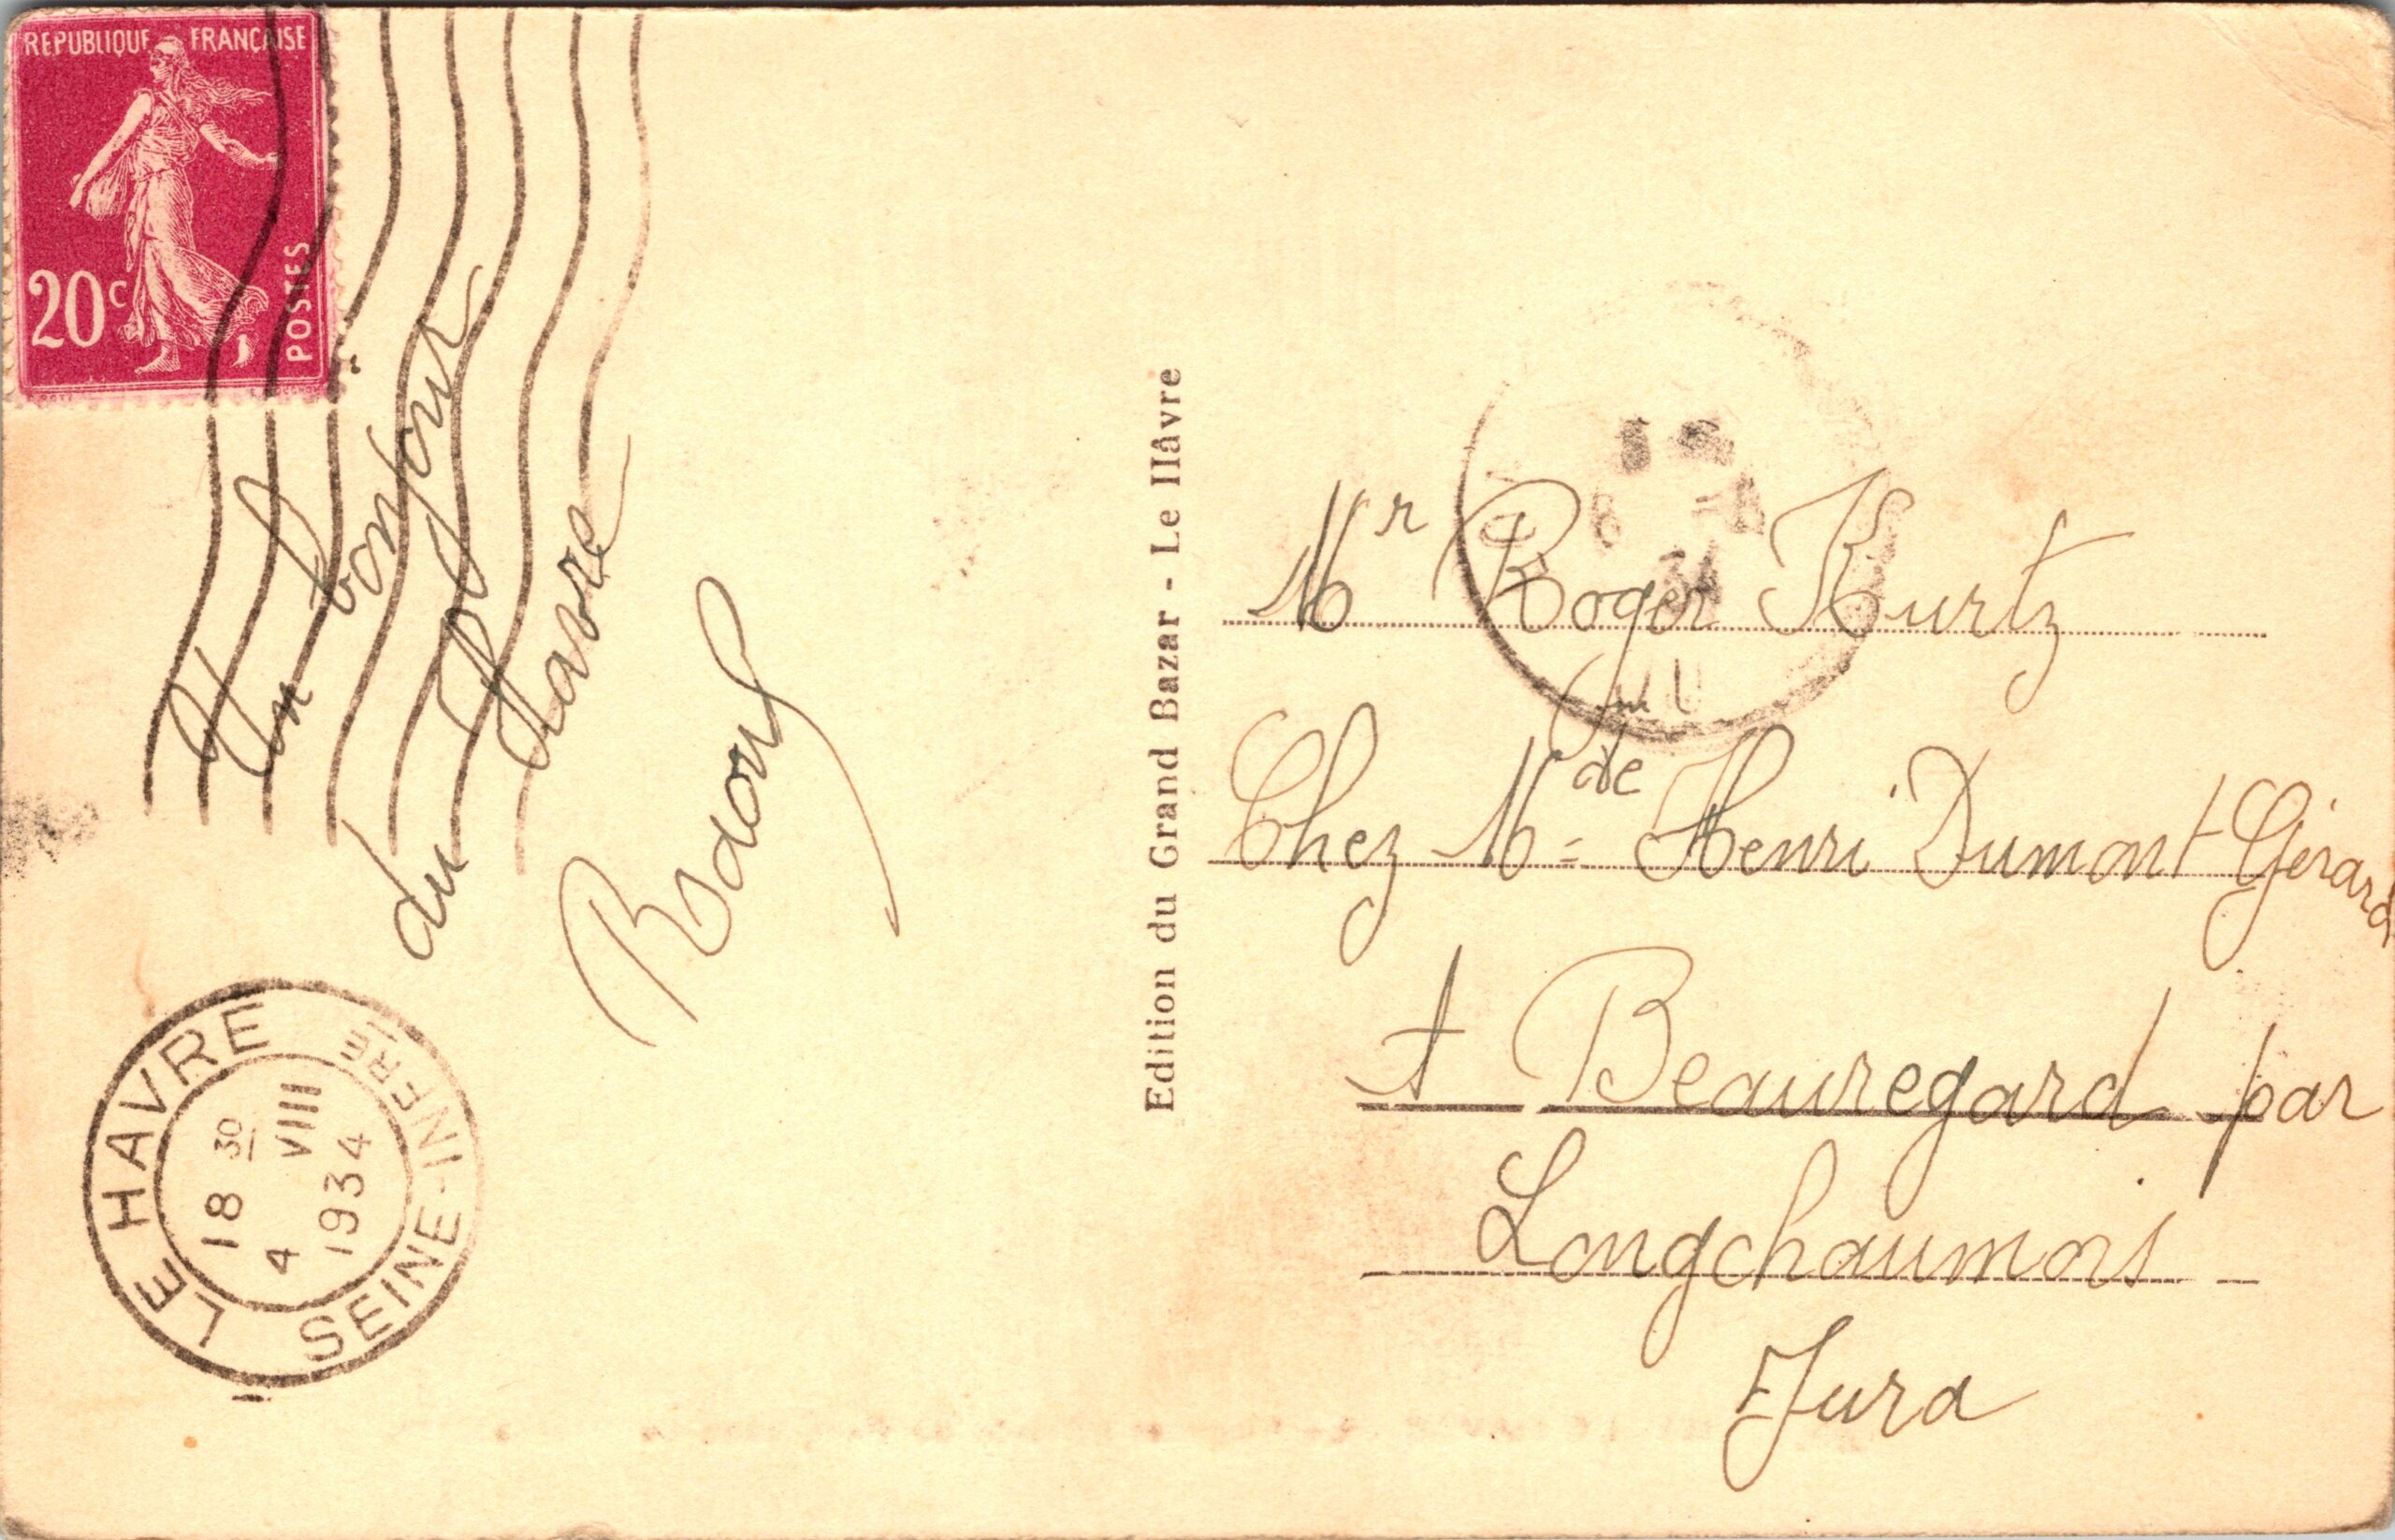 REPUBLIQUE FRANÇAISE
20c
POSTES
Un bonjour
du Havre
LE HAVRE
18 30
4 VIII
1934
SEINE-INFERIE
Edition du Grand Bazar - Le Hâvre
Mr Roger Kurtz
Chez Mde Henri Dumont Gérard
A Beauregard par
Longchaumois
Jura